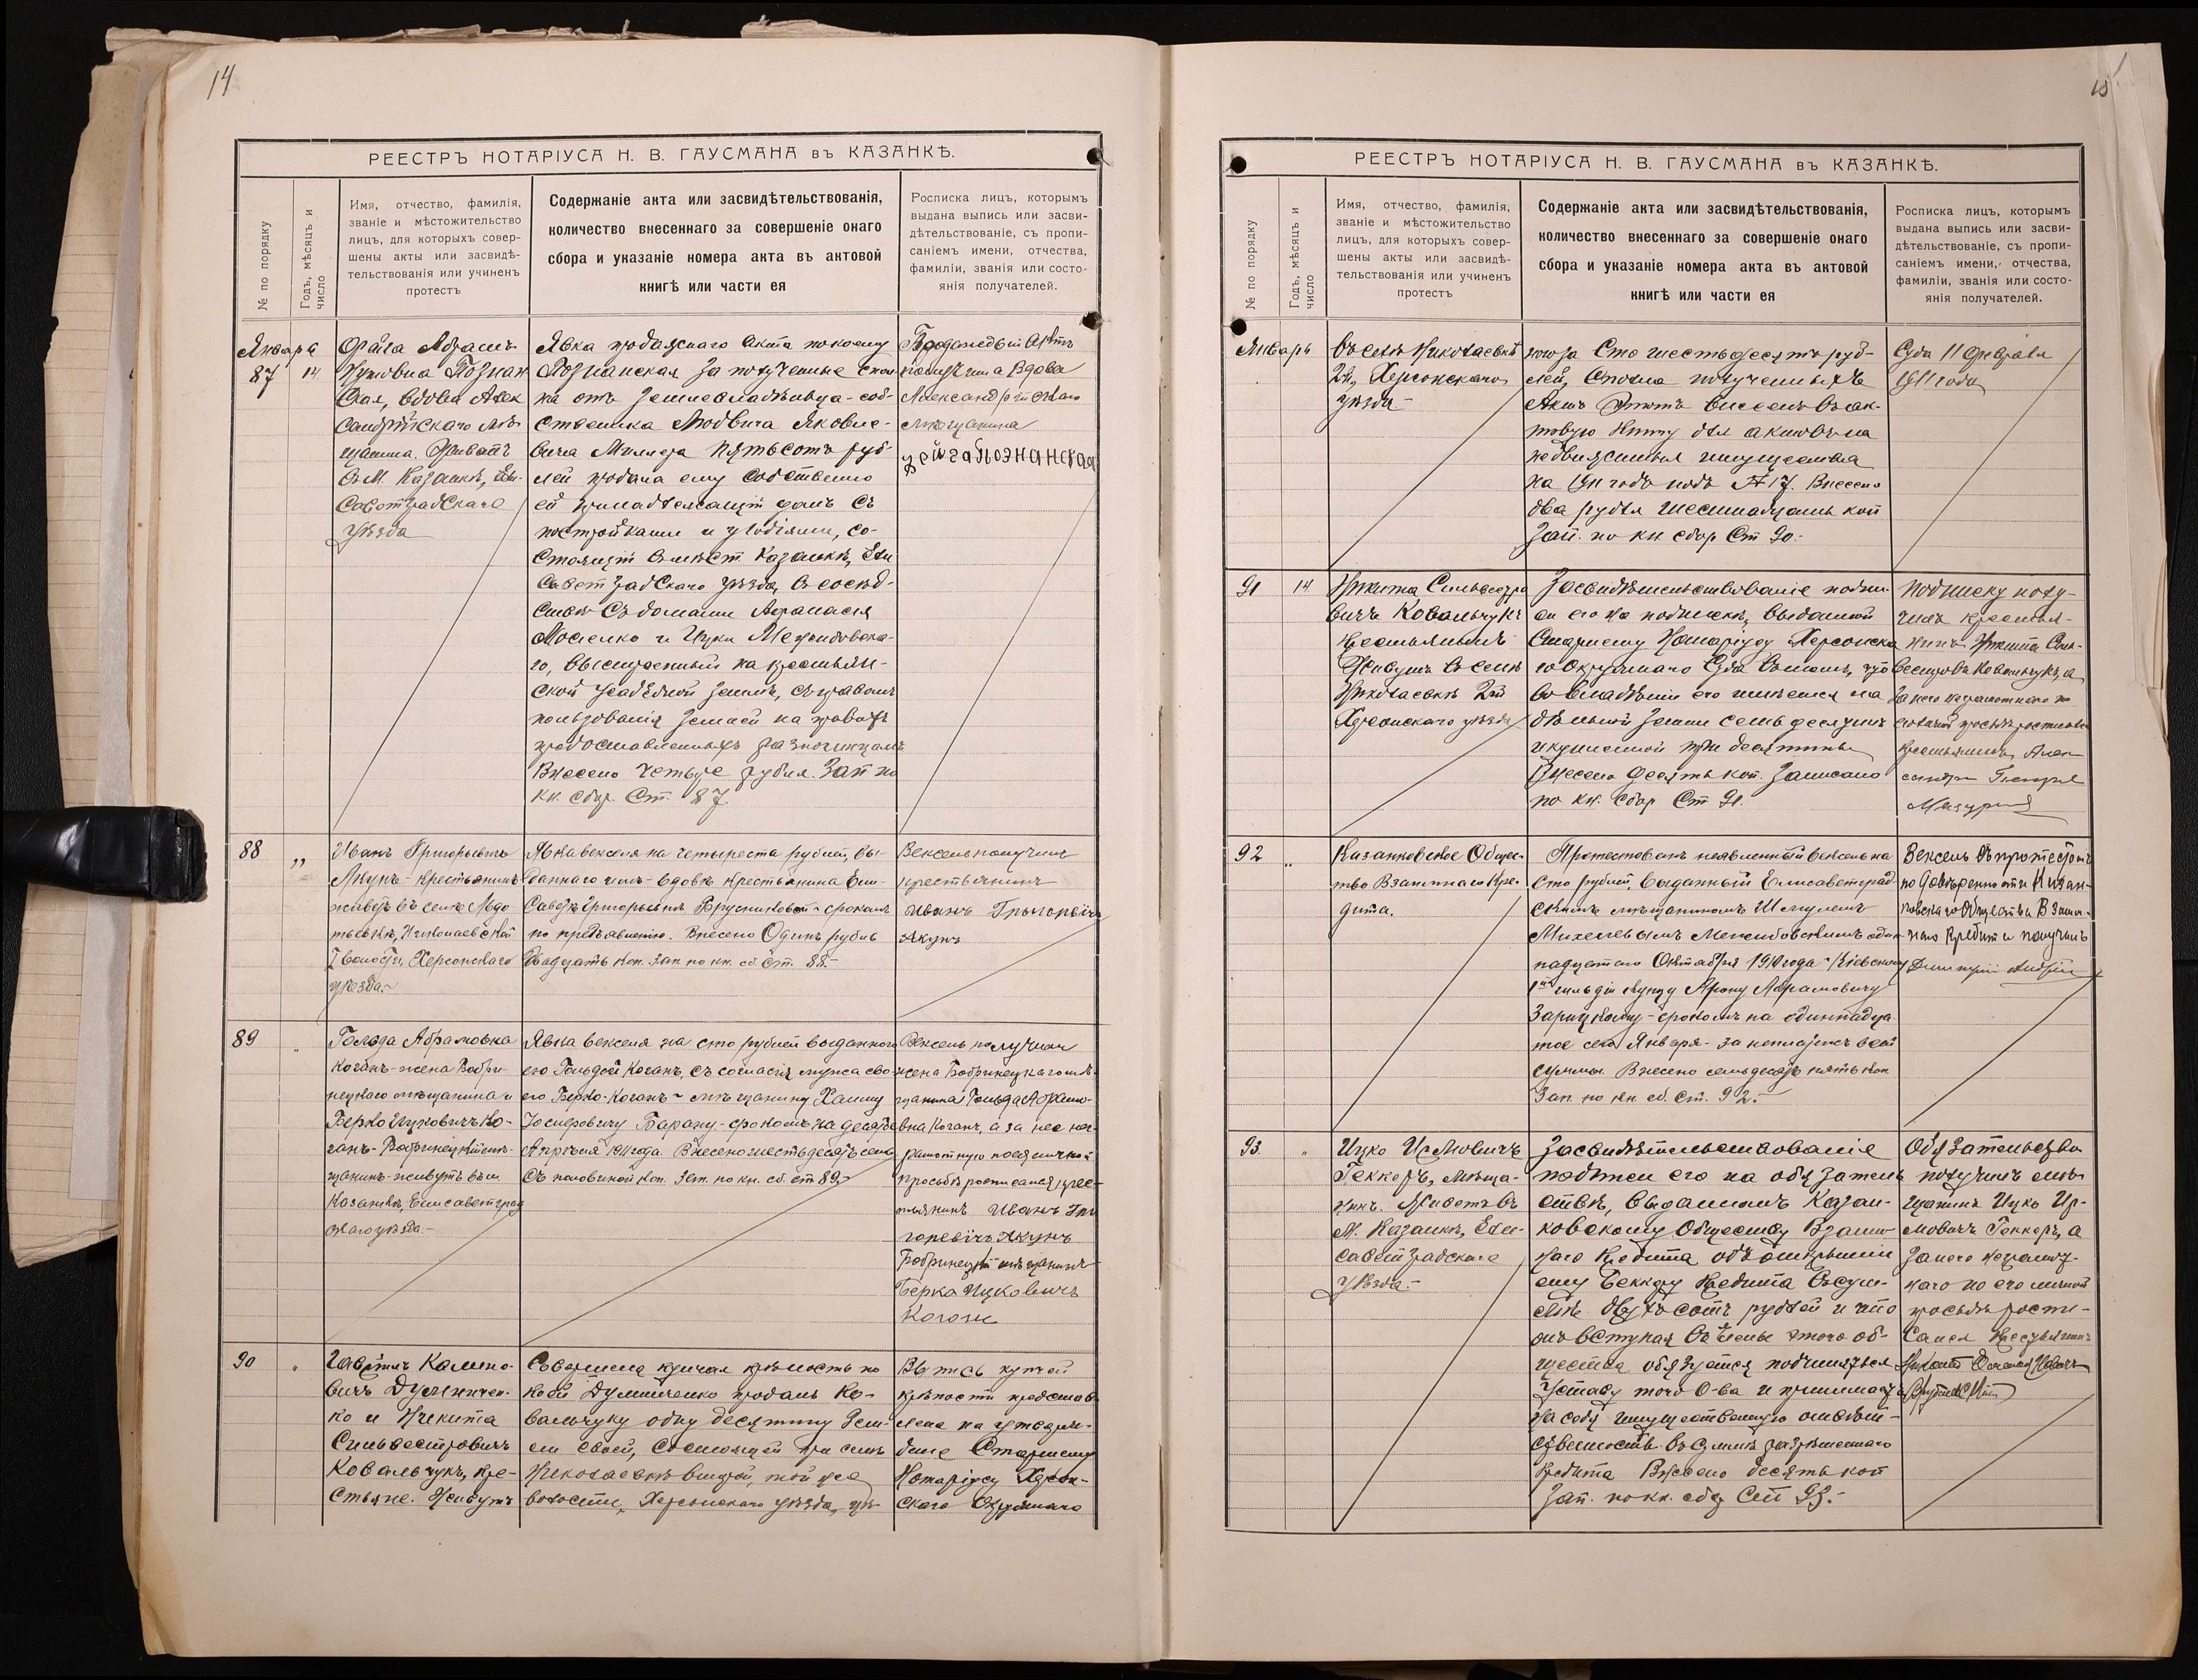 14
РЕЕСТРЪ НОТАРІУСА Н. В. ГАУСМАНА въ КАЗАНКѢ.
№ по порядку
Годъ, мѣсяцъ и
число
Имя, отчество, фамилія,
званіе и мѣстожительство
лицъ, для которыхъ совер-
шены акты или засвидѣ-
тельствованія или учиненъ
протестъ
Содержаніе акта или засвидѣтельствованія,
количество внесеннаго за совершеніе онаго
сбора и указаніе номера акта въ актовой
книгѣ или части ея
Росписка лицъ, которымъ
выдана выпись или засви-
дѣтельствованіе, съ пропи-
саніемъ имени, отчества,
фамиліи, званія или состо-
янія получателей.
Января
87
14
Познан
ская, вдова Алек
сандрійскаго мѣ-
щанина. Живетъ
въ М. Казанкѣ, Ели-
саветградскаго
уѣзда
Явка продажнаго акта по коему
Познанская за полученные спол
на отъ землевладѣльца-соб-
ственника Людвига Яковле-
вича Миллера пятьсотъ руб-
лей продала ему собственно
ей принадлежащій домъ съ
постройками и угодіями, со-
стоящій въ мѣст. Казанкѣ, Ели
саветградскаго уѣзда, въ сосѣд-
ствѣ съ домами Афанасія
Мосиенко и Ицки Межибовска-
го, выстроенный на крестьян-
ской усадебной землѣ, съ правомъ
пользованія землей на правахъ
предоставленныхъ разночинцамъ
Внесено четыре рубля. Зап по
кн. сбор. Ст. 87.
Продажный Актъ
получила вдова
Александрійскаго
мѣщанина
Фейга Познанская
88
„
Иванъ Григорьевичъ
Якунъ - крестьянинъ
живетъ въ селѣ
Николаевской
2 волости, Херсонскаго
уѣзда.-
Явка векселя на четыреста рублей, вы-
даннаго имъ - вдовѣ крестьянина Ели-
саветѣ Григорьевнѣ - срокомъ
по предъявленію. Внесено Одинъ рубль
двадцать коп. Зап. по кн. сб. Ст. 88.-
Вексель получилъ
крестьянинъ
Иванъ Григорьевичъ
Якунъ
89
„
Гольда Абрамовна
Коганъ - жена Бобри-
нецкаго мѣщанина и
Берко Ицковичъ Ко-
ганъ - Бобринецкій мѣ-
щанинъ - живутъ въ м.
Казанкѣ, Елисаветград
скаго уѣзда.-
Явка векселя на сто рублей выданнаго
ею Гольдой Коганъ, съ согласія мужа сво-
его Берко Коганъ - мѣщанину Хаиму
Іосифовичу Барану - срокомъ на десятое
Апрѣля 1911 года. Внесено шестьдесятъ семь
съ половиной коп. Зап. по кн. сб. ст 89.-
Вексель получила
жена Бобринецкаго мѣ-
щанина Гольда Абрамо-
вна Коганъ, а за нее не-
грамотную по ея личной
просьбѣ росписался крес-
тьянинъ Иванъ Гри
горьевичъ Якунъ
Бобринецкій мѣщанинъ
Берка Ицковичъ
Коганъ
90
„
Гавріилъ Калино-
вичъ Думинчен-
ко и Никита
Сильвестровичъ
Ковальчукъ, кре-
стьяне. Живутъ
Совершена купчая крѣпость по
коей Думинченко продалъ Ко-
вальчуку одну десятину зем-
ли своей, состоящей при селѣ
Николаевкѣ второй, той же
волости, Херсонскаго уѣзда, цѣ-
Выпись купчей
крѣпости представ
лена на утверж-
деніе Старшему
Нотаріусу Херсон-
скаго Окружнаго
15
РЕЕСТРЪ НОТАРІУСА Н. В. ГАУСМАНА въ КАЗАНКѢ.
№ по порядку
Годъ, мѣсяцъ и
число
Имя, отчество, фамилія,
званіе и мѣстожительство
лицъ, для которыхъ совер-
шены акты или засвидѣ-
тельствованія или учиненъ
протестъ
Содержаніе акта или засвидѣтельствованія,
количество внесеннаго за совершеніе онаго
сбора и указаніе номера акта въ актовой
книгѣ или части ея
Росписка лицъ, которымъ
выдана выпись или засви-
дѣтельствованіе, съ пропи-
саніемъ имени, отчества,
фамиліи, званія или состо-
янія получателей.
Январь
въ селѣ Николаевкѣ
2й, Херсонскаго
уѣзда-
ною за Сто шестьдесятъ руб-
лей, сполна полученныхъ
Актъ этотъ внесенъ въ ак-
товую книгу для актовъ на
недвижимыя имущества
на 1911 годъ подъ № 17. Внесено
два рубля шестнадцать коп
Зап. по кн. сбор Ст 90.-
Суда 11 февраля
1911 года
91
14
Никита Сильвестро
вичъ Ковальчукъ
крестьянинъ
Живущъ въ селѣ
Николаевкѣ 2й
Херсонскаго уѣзда
Засвидѣтельствованіе подпи-
си его на подпискѣ, выданной
Старшему Нотаріусу Херсонска
го Окружнаго Суда въ томъ, что
во владѣніи его имѣется на
дѣльной земли семь десятинъ
и купленной три десятины
Внесено десять коп. Записано
по кн. сбор Ст 91.
Подписку полу-
чилъ крестья-
нинъ Никита Силь-
вестровъ Ковальчукъ, а
за него неграмотнаго по
его личной просьбѣ росписался
крестьянинъ Алек
сандръ
92
„
Казанковское Общес-
тво Взаимнаго Кре-
дита.
Протестованъ неявленный вексель на
сто рублей, выданный Елисаветград-
скимъ мѣщаниномъ Шмулемъ
Михелевымъ Межибовскимъ один-
надцатаго Октября 1910 года - Кіевскому
1ой гильдіи купцу Арону Абрамовичу
Зарицкому - срокомъ на одиннадца-
тое сего Января - за неплатежъ всей
суммы. Внесено семьдесятъ пять коп.
Зап. по кн. сб. Ст. 92.-
Вексель съ протестомъ
по довѣренности Казан-
ковскаго Общества Взаим-
наго Кредита получилъ
Дмитрій
93.
„
Ицко
Геккеръ, мѣща-
нинъ. Живетъ въ
М. Казанкѣ, Ели-
саветградскаго
уѣзда.-
Засвидѣтельствованіе
подписи его на обязатель
ствѣ, выданномъ Казан-
ковскому Обществу Взаим-
наго Кредита объ открытіи
ему Геккеру кредита въ сум-
мѣ двухъ сотъ рублей и что
онъ вступая въ члены этого об-
щества обязуется подчиняться
Уставу того О-ва и принимаетъ
на себя имущественную отвѣт-
ственность въ суммѣ разрѣшеннаго
кредита Внесено десять коп
Зап. по кн. сбор Ст 93.-
Обязательство
получилъ мѣ-
щанинъ Ицко
Геккеръ, а
за него неграмот-
наго по его личной
просьбѣ роспи-
сался крестьянинъ